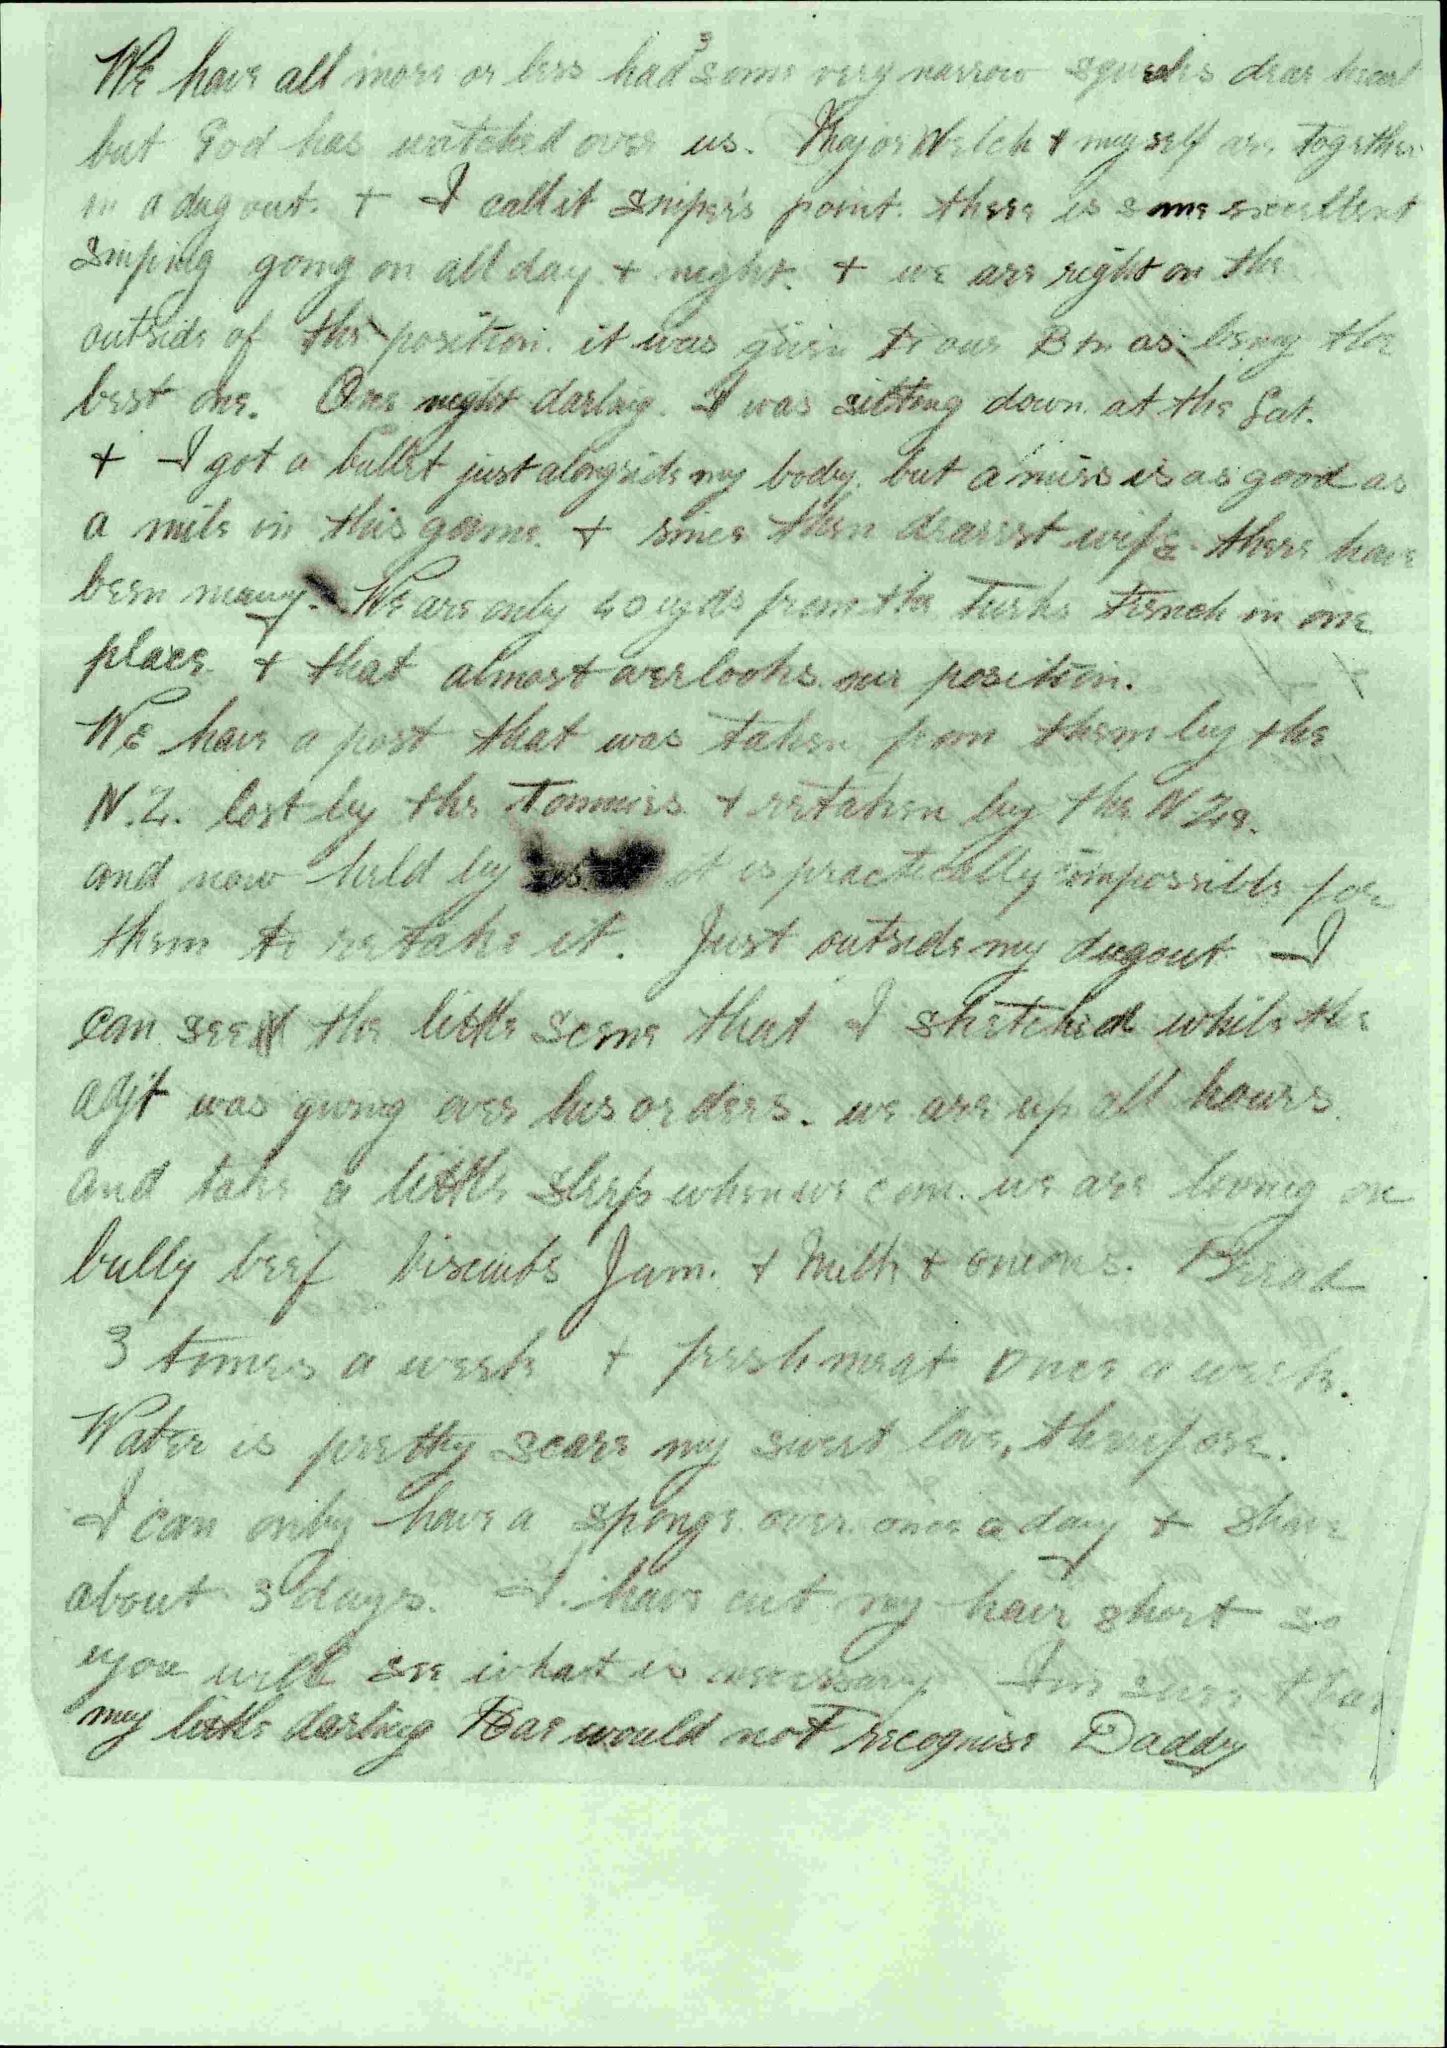 3
We have all more or less had some very narrow squeaks dear heart
but God has watched over us. Major Welch & myself are together
in a dug out. & I call it sniper's point. there is some excellent
sniping going on all day & night. & we are right on the
outside of the position. it was given to our Btn as being the
best one. One night darling. I was sitting down at the Lat.
& I got a bullet just alongside my body. but a miss is as good as
a mile in this game. & since then dearest wife. there have
been many. We are only 40 yds from the Turks Trench in one
place & that almost overlooks our position.
We have a post that was taken from them by the
N.Z. lost by the Tommies & retaken by the N Zs.
and now held by us it is practically impossible for
them to retake it. Just outside my dugout I
can see the little scene that I sketched while the
adjt was going over his orders. we are up all hours
and take a little sleep when we can. we are living on
bully beef biscuits Jam. & Milk & onions. Bread
3 times a week & fresh meat once a week.
Water is pretty scare my sweet love, therefore.
I can only have a sponge over once a day & shave
about 3 days. I have cut my hair short so
you will see what is necessary Im sure that
my little darling would not recognise Daddy